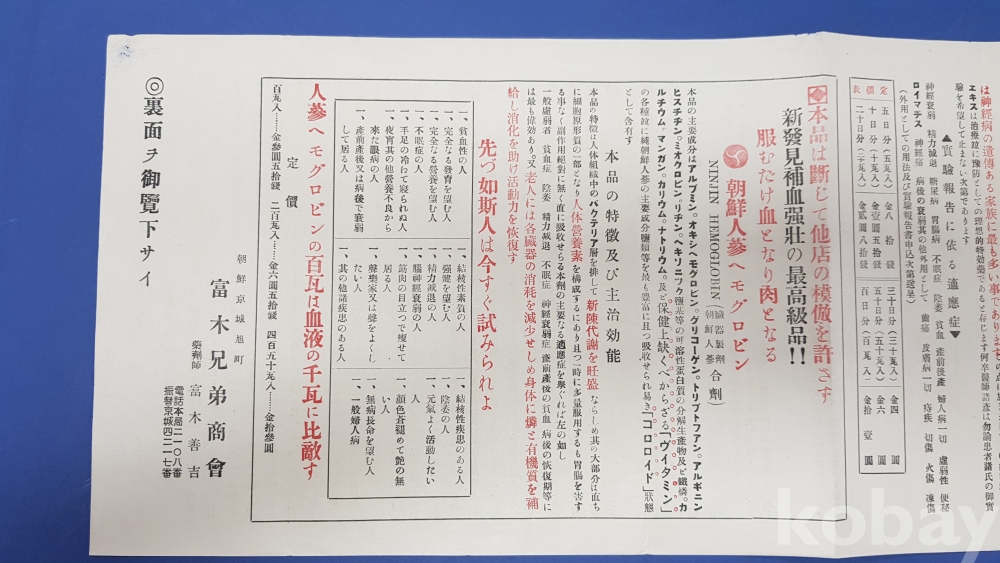 は神經病の遺傳ある家族に最も多い事
エキスは治療竝に豫防としての理想的特効藥であると存じます何卒醫師諸彦は勿論患者諸氏の御實
驗を希望して止まない次第であります
▲實驗報告に依る適應症▼
神經衰弱 精力減退 糖尿病 胃腸病 不眠症 陰萎 貧血 產前後產 婦人病一切 虛弱性 便秘
ロイマチス 神經痛 病後の衰弱其の他外用として 齒痛 皮膚病一切 痔疾 切傷 火傷 凍傷
（外用としての用法及び實驗報告書申込次第送呈）
定價表
五日分（五瓦入）金八拾錢 三十日分（三十瓦入）金四圓
十日分（十瓦入）金壹圓五拾錢 五十日分（五十瓦入）金六圓
二十日分（二十瓦入）金貳圓八拾錢 百日分（百瓦入）金拾壹圓
本品は斷じて他店の模倣を許さず
新發見補血强壯の最高級品!!
服むだけ血となり肉となる
朝鮮人蔘ヘモグロビン
NINJIN HEMOGLOBIN（臓器製劑 朝鮮人蔘 合劑）
本品の主要成分はアルブミン。オキシヘモグロビン。グリコーゲン。トリプトファン。アルギニン
ヒスチヂン。ミオクロビン。リヂン。ヘキソニツク鹽基等の可溶性蛋白質の分解生產物及び鐵燐。カ
ルチウム。マンガン。カリウム。ナトリウム。及び保健上缺くべからざる「ヴイタミン」
の各種竝に純朝鮮人蔘の主要成分醣類等を最も豐富に且つ吸收せられ易き「コロロイド」狀態
として含有す
本品の特徵及び主治効能
本品の特徵は人体組織中のバクテリア層を排して新陳代謝を旺盛ならしめ其の大部分は直ち
に細胞原形質の一部となり人体營養素を構成するにあり且つ一時に多量服用するも胃腸を害す
る事なく副作用絕對に無く直に吸收せらる本劑の主要なる適應症を擧ぐれば左の如し
一般虛弱者 貧血症 陰萎 精力減退 不眠症 神經衰弱症 產前產後の貧血 病後の恢復期等に
は最も偉効ある。又老人には各臟器の消耗を減少せしめ身体に燐と有機質を補
給し消化を助け活動力を恢復す
先づ如斯人は今すぐ試みられよ
一、貧血性の人
一、完全なる發育を望む人
一、完全なる營養を望む人
一、不眠症の人
一、手足の冷わて寢られぬ人
一、夜宵其の他營養不良から
來た眼病の人
一、產前產後又は病後で衰弱
して居る人
一、結核性素質の人
一、强健を望む人
一、精力減退の人
一、腦神經衰弱の人
一、筋肉の目立つて瘦せて
居る人
一、聲樂家又は聲をよくし
たい人
一、其の他諸疾患のある人
一、結核性疾患のある人
一、陰萎の人
一、元氣よく活動したい
人
一、顏色蒼褪めて艶の無
い人
一、無病長命を望む人
一、一般婦人病
人蔘ヘモグロビンの百瓦は血液の千瓦に比敵す
定價
百瓦入……金參圓五拾錢 二百瓦入……金六圓五拾錢 四百五十瓦入……金拾參圓
◎裏面ヲ御覽下サイ
朝鮮京城旭町
富木兄弟商會
藥劑師 富木善吉
電話本局二一〇八番
振替京城四二一七番
kobay